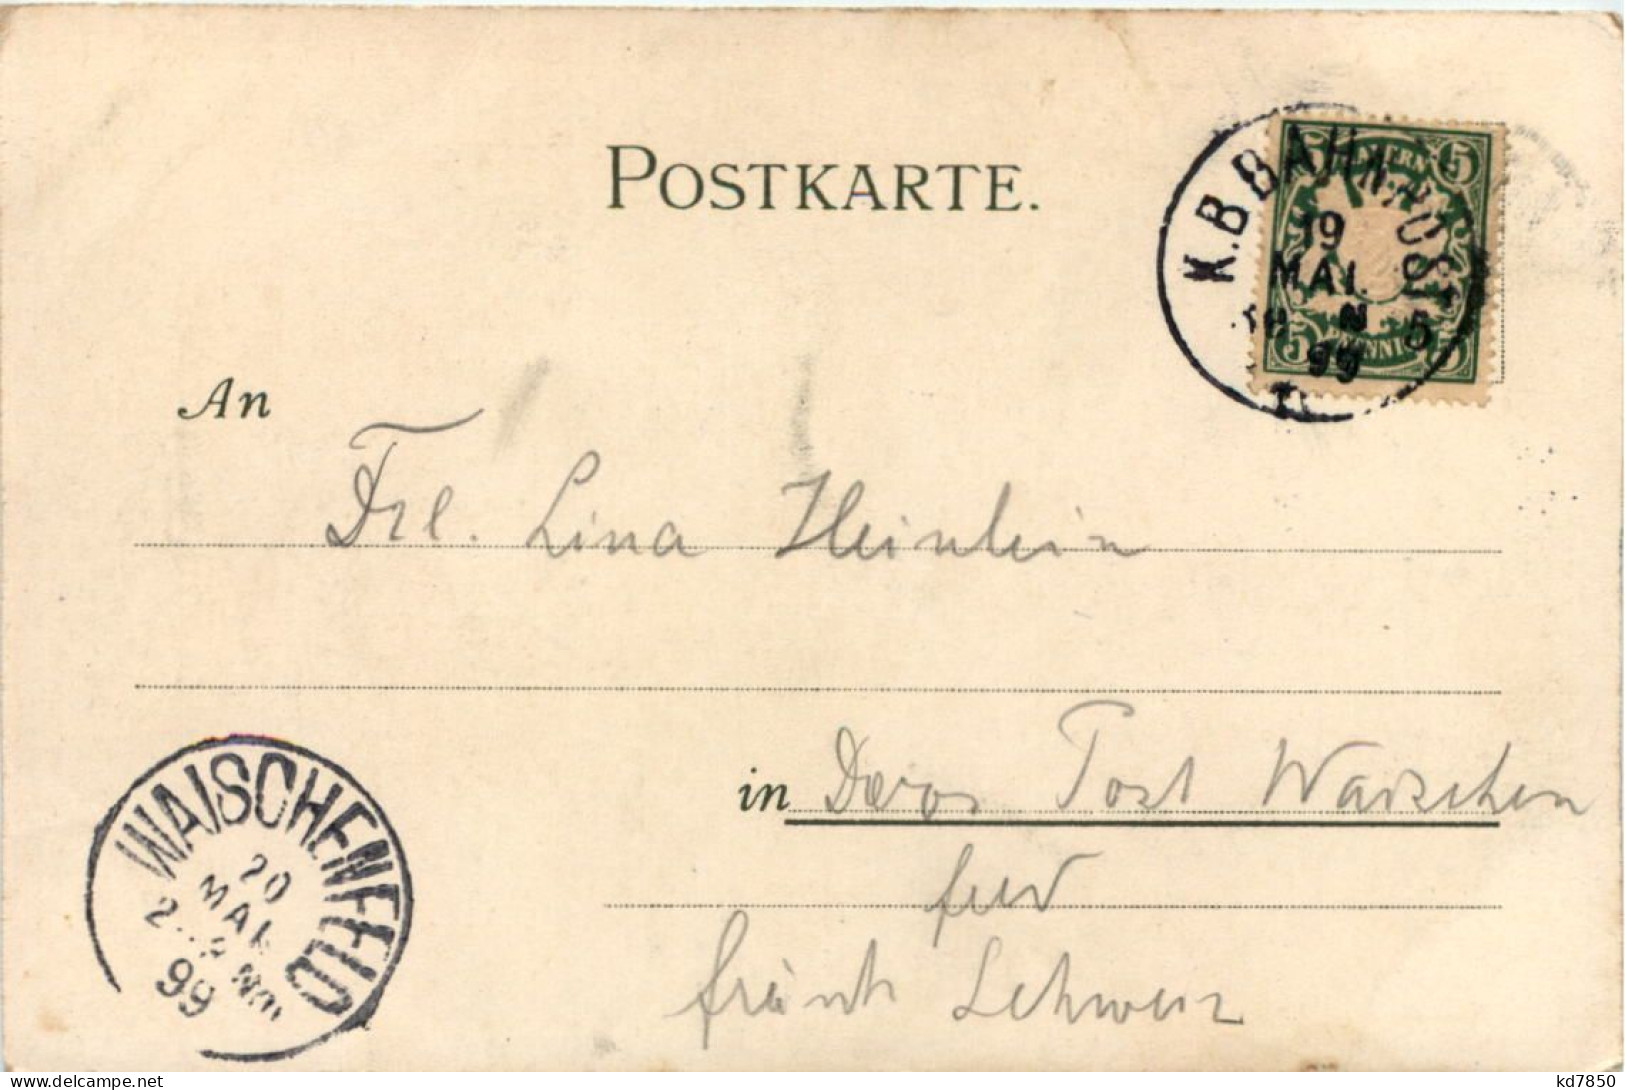 POSTKARTE.
K.B.BAHNPOST
19
MAI.
N 5
99
II
BAYERN
5 5
5 PFENNIG 5
An
Frl. Lina Heinlein
in Doos Post Waischen
feld
fränk Schweiz
WAISCHENFELD
20
MAI
2 Nm
99
kd7850